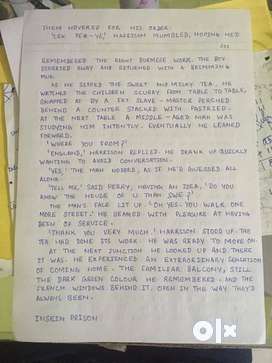 THEN HOVERED FOR HIS ORDER.
'LEK PER-YE,' HARRISON MUMBLED, HOPING HE'D
REMEMBERED THE RIGHT BURMESE WORD. THE BOY
DEPARTED AWAY AND RETURNED WITH A BRIMMING
MUG.
AS HE SIPPED THE SWEET, MILKY TEA, HE
WATCHED THE CHILDREN SCURRY FROM TABLE TO TABLE,
BY A FAT SLAVE-MASTER PERCHED
BEHIND A COUNTER STACKED WITH PASTRIES.
AT THE NEXT TABLE A MIDDLE-AGED MAN WAS
STUDYING HIM INTENTLY. EVENTUALLY HE LEANED
FORWARD.
'WHERE YOU FROM?'
'ENGLAND,' HARRISON REPLIED. HE DRANK UP QUICKLY
WANTING TO AVOID CONVERSATION.
'YES,' THE MAN NODDED, AS IF HE'D GUESSED ALL
ALONG.
'TELL ME,' SAID PERRY, HAVING AN IDEA, 'DO YOU
KNOW THE HOUSE OF U THAN SWE?'
THE MAN'S FACE LIT UP. 'OH YES. YOU WALK ONE
MORE STREET.' HE BEAMED WITH PLEASURE AT HAVING
BEEN OF SERVICE.
'THANK YOU VERY MUCH.' HARRISON STOOD UP. THE
TEA HAD DONE ITS WORK. HE WAS READY TO MOVE ON.
AT THE NEXT JUNCTION HE LOOKED UP AND THERE
IT WAS. HE EXPERIENCED AN EXTRAORDINARY SENSATION
OF COMING HOME. THE FAMILIAR BALCONY, STILL
THE DARK GREEN COLOUR HE REMEMBERED. AND THE
FRENCH WINDOWS BEHIND IT, OPEN IN THE WAY THEY'D
ALWAYS BEEN.
INSEIN PRISON
OLX